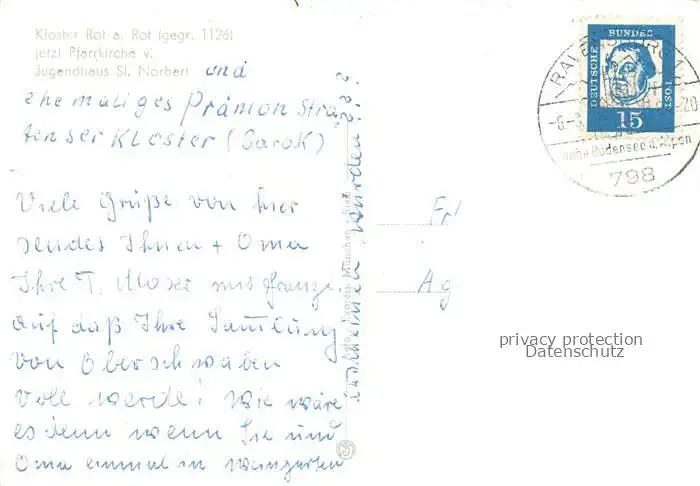 Kloster Rot a. Rot (gegr. 1126)
jetzt Pfarrkirche v.
Jugendhaus St. Norbert und
ehemaliges Prämonstra
tenser Kloster (Barok)
Viele Grüße von hier
sendet Ihnen + Oma
Ihre T. Moser mit
auf daß Ihre Samlung
von Oberschwaben
voll werde! Wie wäre
es denn wenn Sie und
Oma einmal in Weingarten
würden?
München
Fr
Ag
DEUTSCHE BUNDESPOST
15
RAVENSBURG 1
-6.-
-20
nahe Bodensee u. Alpen
798
privacy protection
Datenschutz